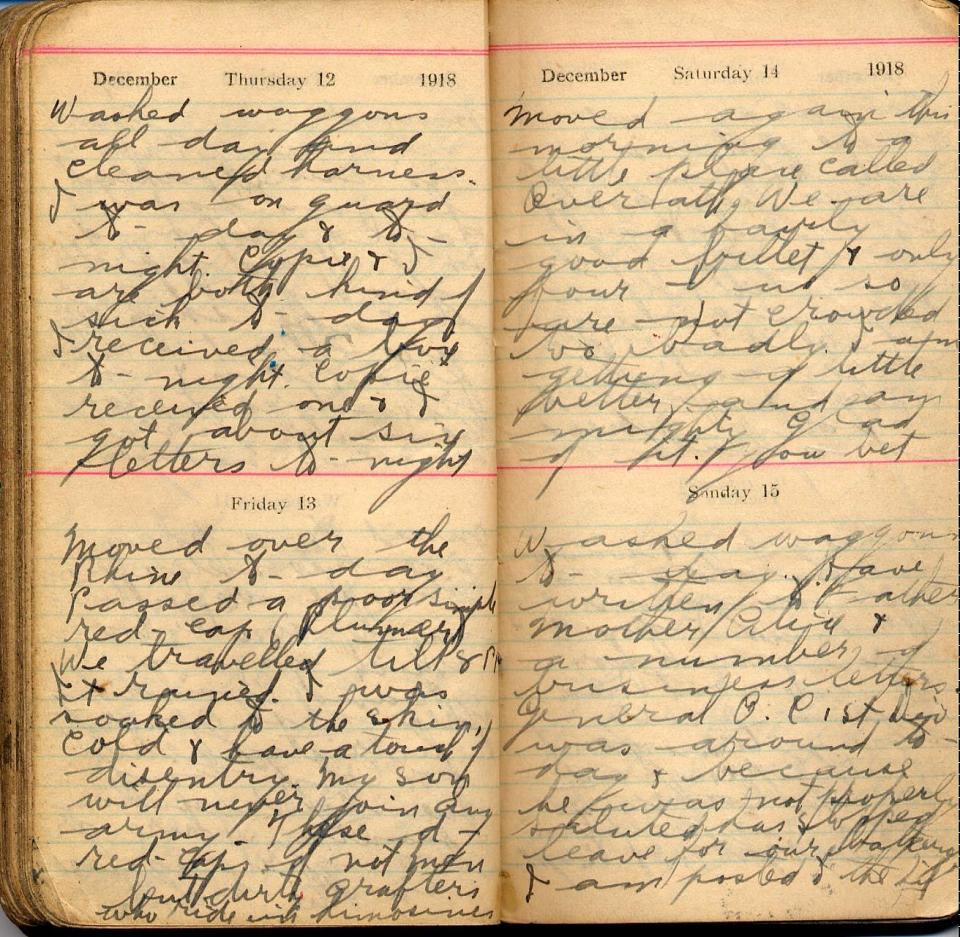 December Thursday 12 1918
Washed waggons
all day and
cleaned harness.
I was on guard
to- day & to-
night. Coppie & I
are both kind of
sick to- day
I received a box
to- night. Coppie
received one & I
got about six
letters to- night
Friday 13
Moved over the
Rhine to- day
Passed a poor simple
red- cap (Plummer)
We travelled till 8 PM
It rained. I was
soaked to the skin,
cold & have a touch of
disentry. My son
will never join any
army. These d-
red- caps of not men
but durty grafters
who ride in limosines
December Saturday 14 1918
Moved again this
morning to a
little place called
Overath. We are
in a fairly
good billet & only
four of us so
are not crowded
too badly. I am
getting a little
better and am
mighty glad
of it. you bet
Sunday 15
Washed waggons
to- day. Have
written to Father
Mother Alice &
a number of
business letters.
General O. C 1st Div
was around to-
day & because
he was not properly
saluted has stopped
leave for our
I am posted to the